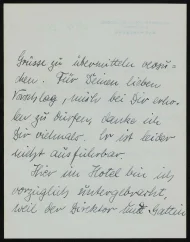 Grüsse zu übermitteln versu-
chen. Für Deinen lieben
Vorschlag, mich bei Dir erho-
len zu dürfen, danke ich
Dir vielmals. Er ist leider
nicht ausführbar.
Hier im Hotel bin ich
vorzüglich untergebracht,
weil der Direktor und Gattin